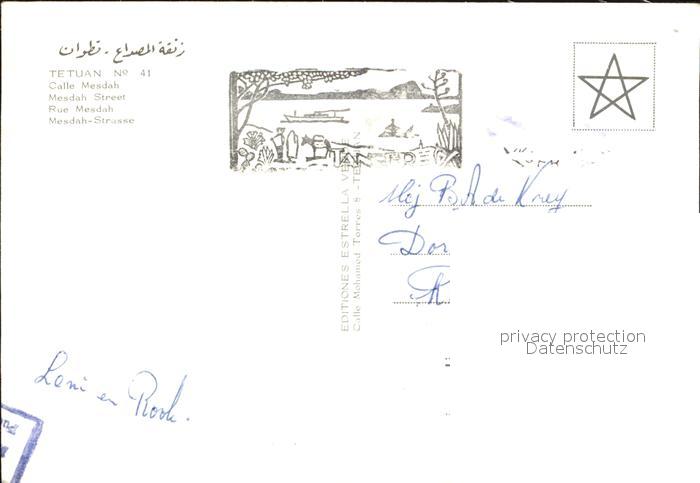 زنقة المصداع - تطوان
TETUAN Nº 41
Calle Mesdah
Mesdah Street
Rue Mesdah
Mesdah-Strasse
TANGER
EDITIONES ESTRELLA VERDE
Calle Mohamed Torres 8 - TETUAN
Mej B.A de Kney
Dor
K
privacy protection
Datenschutz
Leni en Rook.